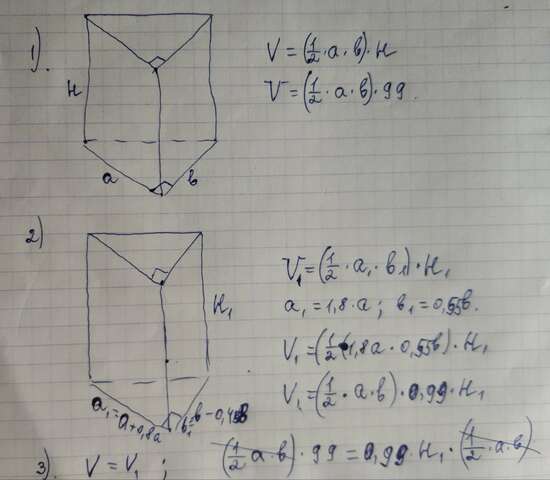 1).
H
a
b
V = (1/2 · a · b) · H
V = (1/2 · a · b) · 99
2)
H₁
a₁ = a + 0,8a
b₁ = b - 0,45b
V₁ = (1/2 · a₁ · b₁) · H₁
a₁ = 1,8 · a; b₁ = 0,55b.
V₁ = (1/2 · 1,8a · 0,55b) · H₁
V₁ = (1/2 · a · b) · 0,99 · H₁
3). V = V₁ ; (1/2 a · b) · 99 = 0,99 · H₁ · (1/2 · a · b)